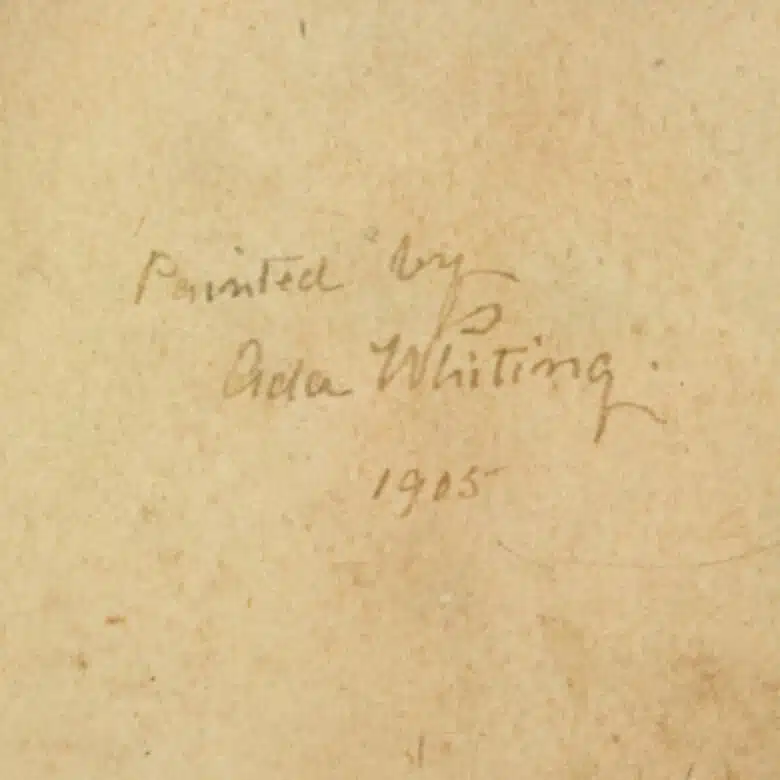 Painted by
Ada Whiting.
1905